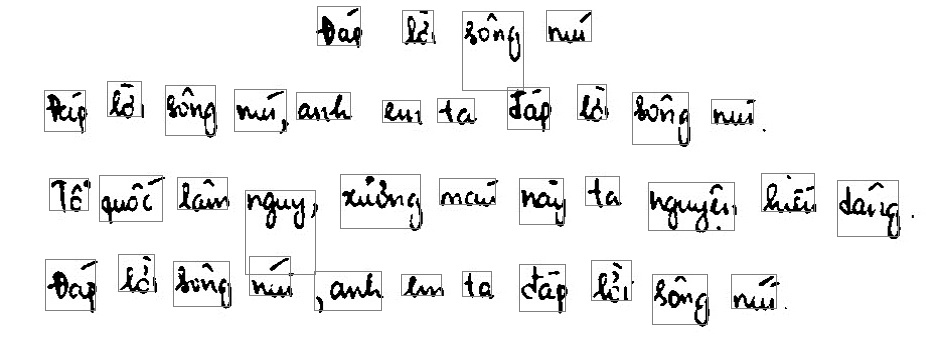 Đáp lời sông núi
Đáp lời sông núi, anh em ta đáp lời sông núi.
Tổ quốc lâm nguy, xương máu này ta nguyện hiến dâng.
Đáp lời sông núi, anh em ta đáp lời sông núi.